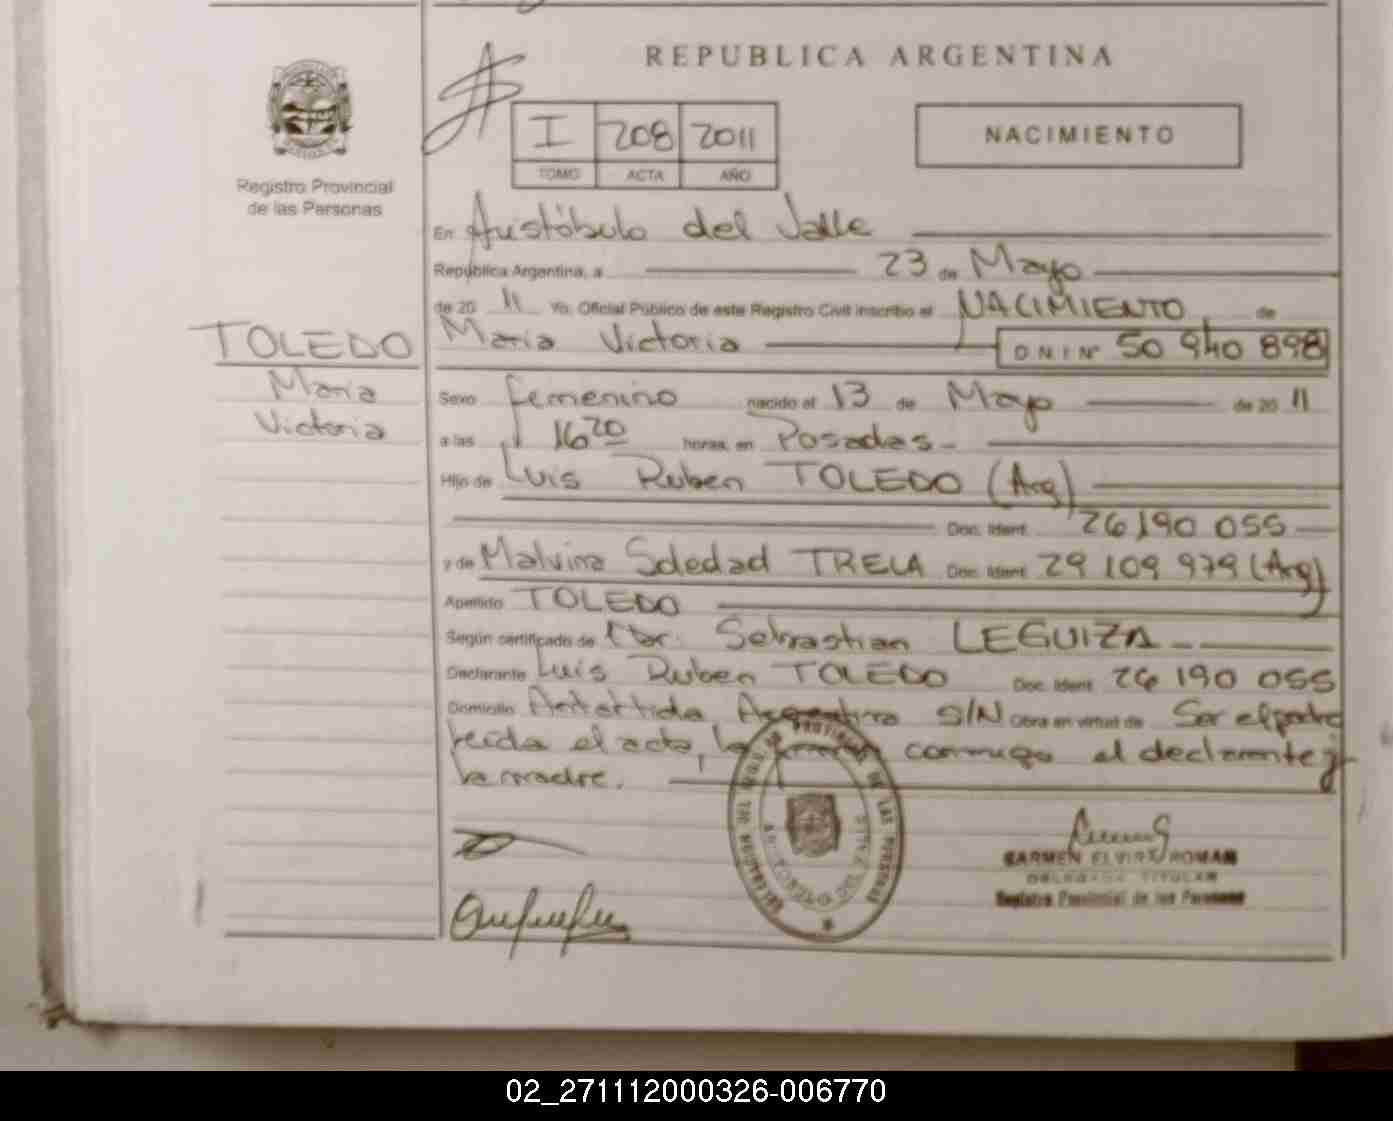 REPUBLICA ARGENTINA
I 208 2011
TOMO ACTA AÑO
NACIMIENTO
Registro Provincial
de las Personas
En Aristóbulo del Valle
República Argentina, a 23 de Mayo
de 20 11 Yo, Oficial Público de este Registro Civil inscribo el NACIMIENTO de
Maria Victoria D N I Nº 50 940 898
TOLEDO
Maria
Victoria
Sexo femenino nacido el 13 de Mayo de 20 11
a las 16 20 horas, en Posadas
Hijo de Luis Ruben TOLEDO (Arg)
Doc. Ident. 26 190 055
y de Malvina Soledad TRELA Doc. Ident. 29 109 979 (Arg)
Apellido TOLEDO
Según certificado de Sebastian LEGUIZA
Declarante Luis Ruben TOLEDO Doc. Ident. 26 190 055
Domicilio Antartida Argentina S/N Obra en virtud de Ser el padre
leida el acta, la conmigo el declarante y
la madre.
CARMEN ELVIRA ROMAN
DELEGADA TITULAR
Registro Provincial de las Personas
02_271112000326-006770